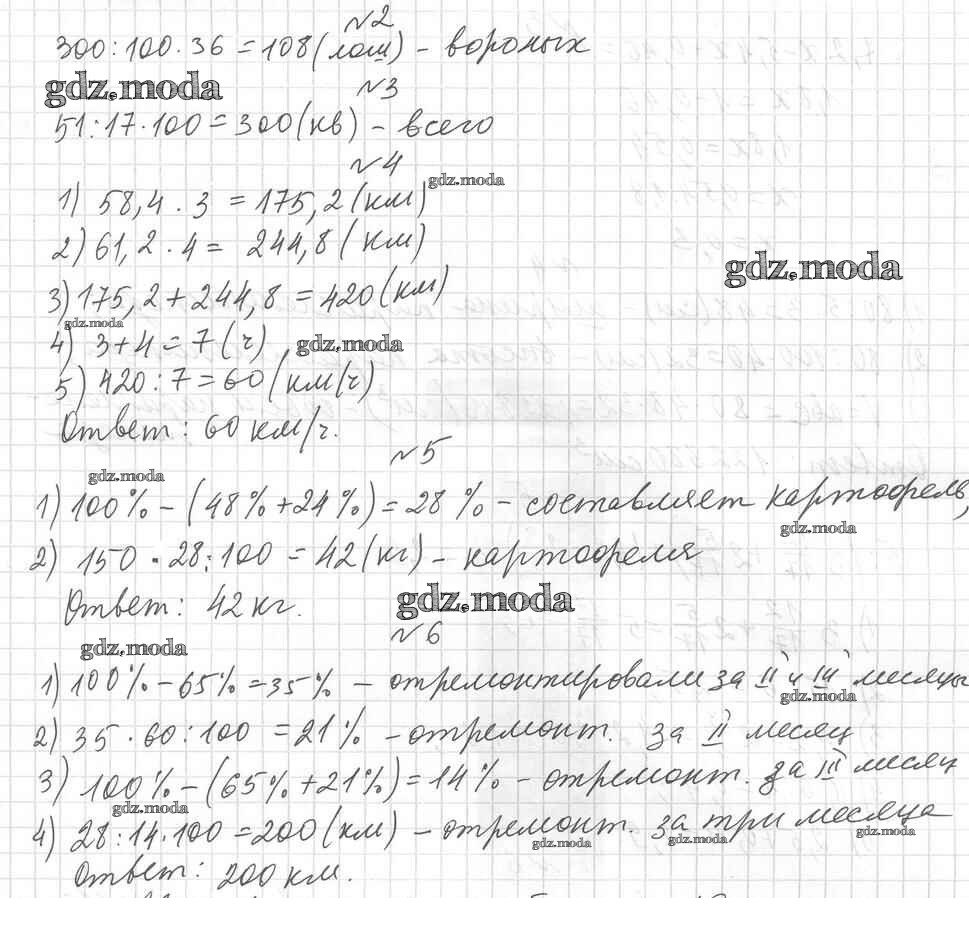 №2
300:100·36=108(лош) - вороных
gdz.moda
№3
51:17·100=300(кв) - всего
№4
gdz.moda
1) 58,4·3=175,2(км)
2) 61,2·4= 244,8(км)
gdz.moda
3) 175,2+244,8=420(км)
gdz.moda
4) 3+4=7(ч)
gdz.moda
5) 420:7=60(км/ч)
Ответ: 60 км/ч.
№5
gdz.moda
1) 100% - (48%+24%)=28% - составляет картофель,
gdz.moda
2) 150·28:100=42(кг) - картофеля
Ответ: 42кг.
gdz.moda
№6
gdz.moda
1) 100%-65%=35% - отремонтировали за II и III месяцы
gdz.moda
2) 35·60:100=21% - отремонт. за II месяц
3) 100%-(65%+21%)=14% - отремонт. за III месяц
gdz.moda
4) 28:14·100=200(км) - отремонт. за три месяца
gdz.moda
gdz.moda
gdz.moda
Ответ: 200 км.